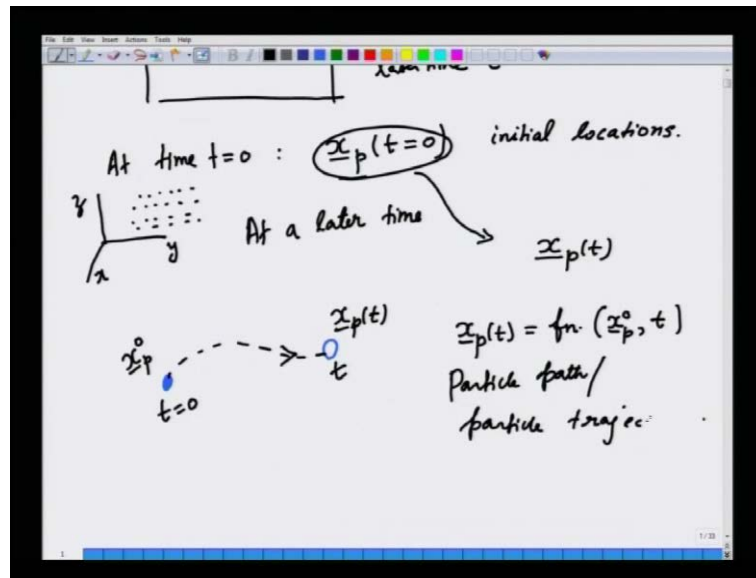 File Edit View Insert Actions Tools Help
later time t
At time t=0 : x̲p(t=0) initial locations.
z
y
x
At a later time
x̲p(t)
x̲p⁰
t=0
x̲p(t)
t
x̲p(t) = fn. (x̲p⁰, t)
Particle path/
particle trajec
1/33
1